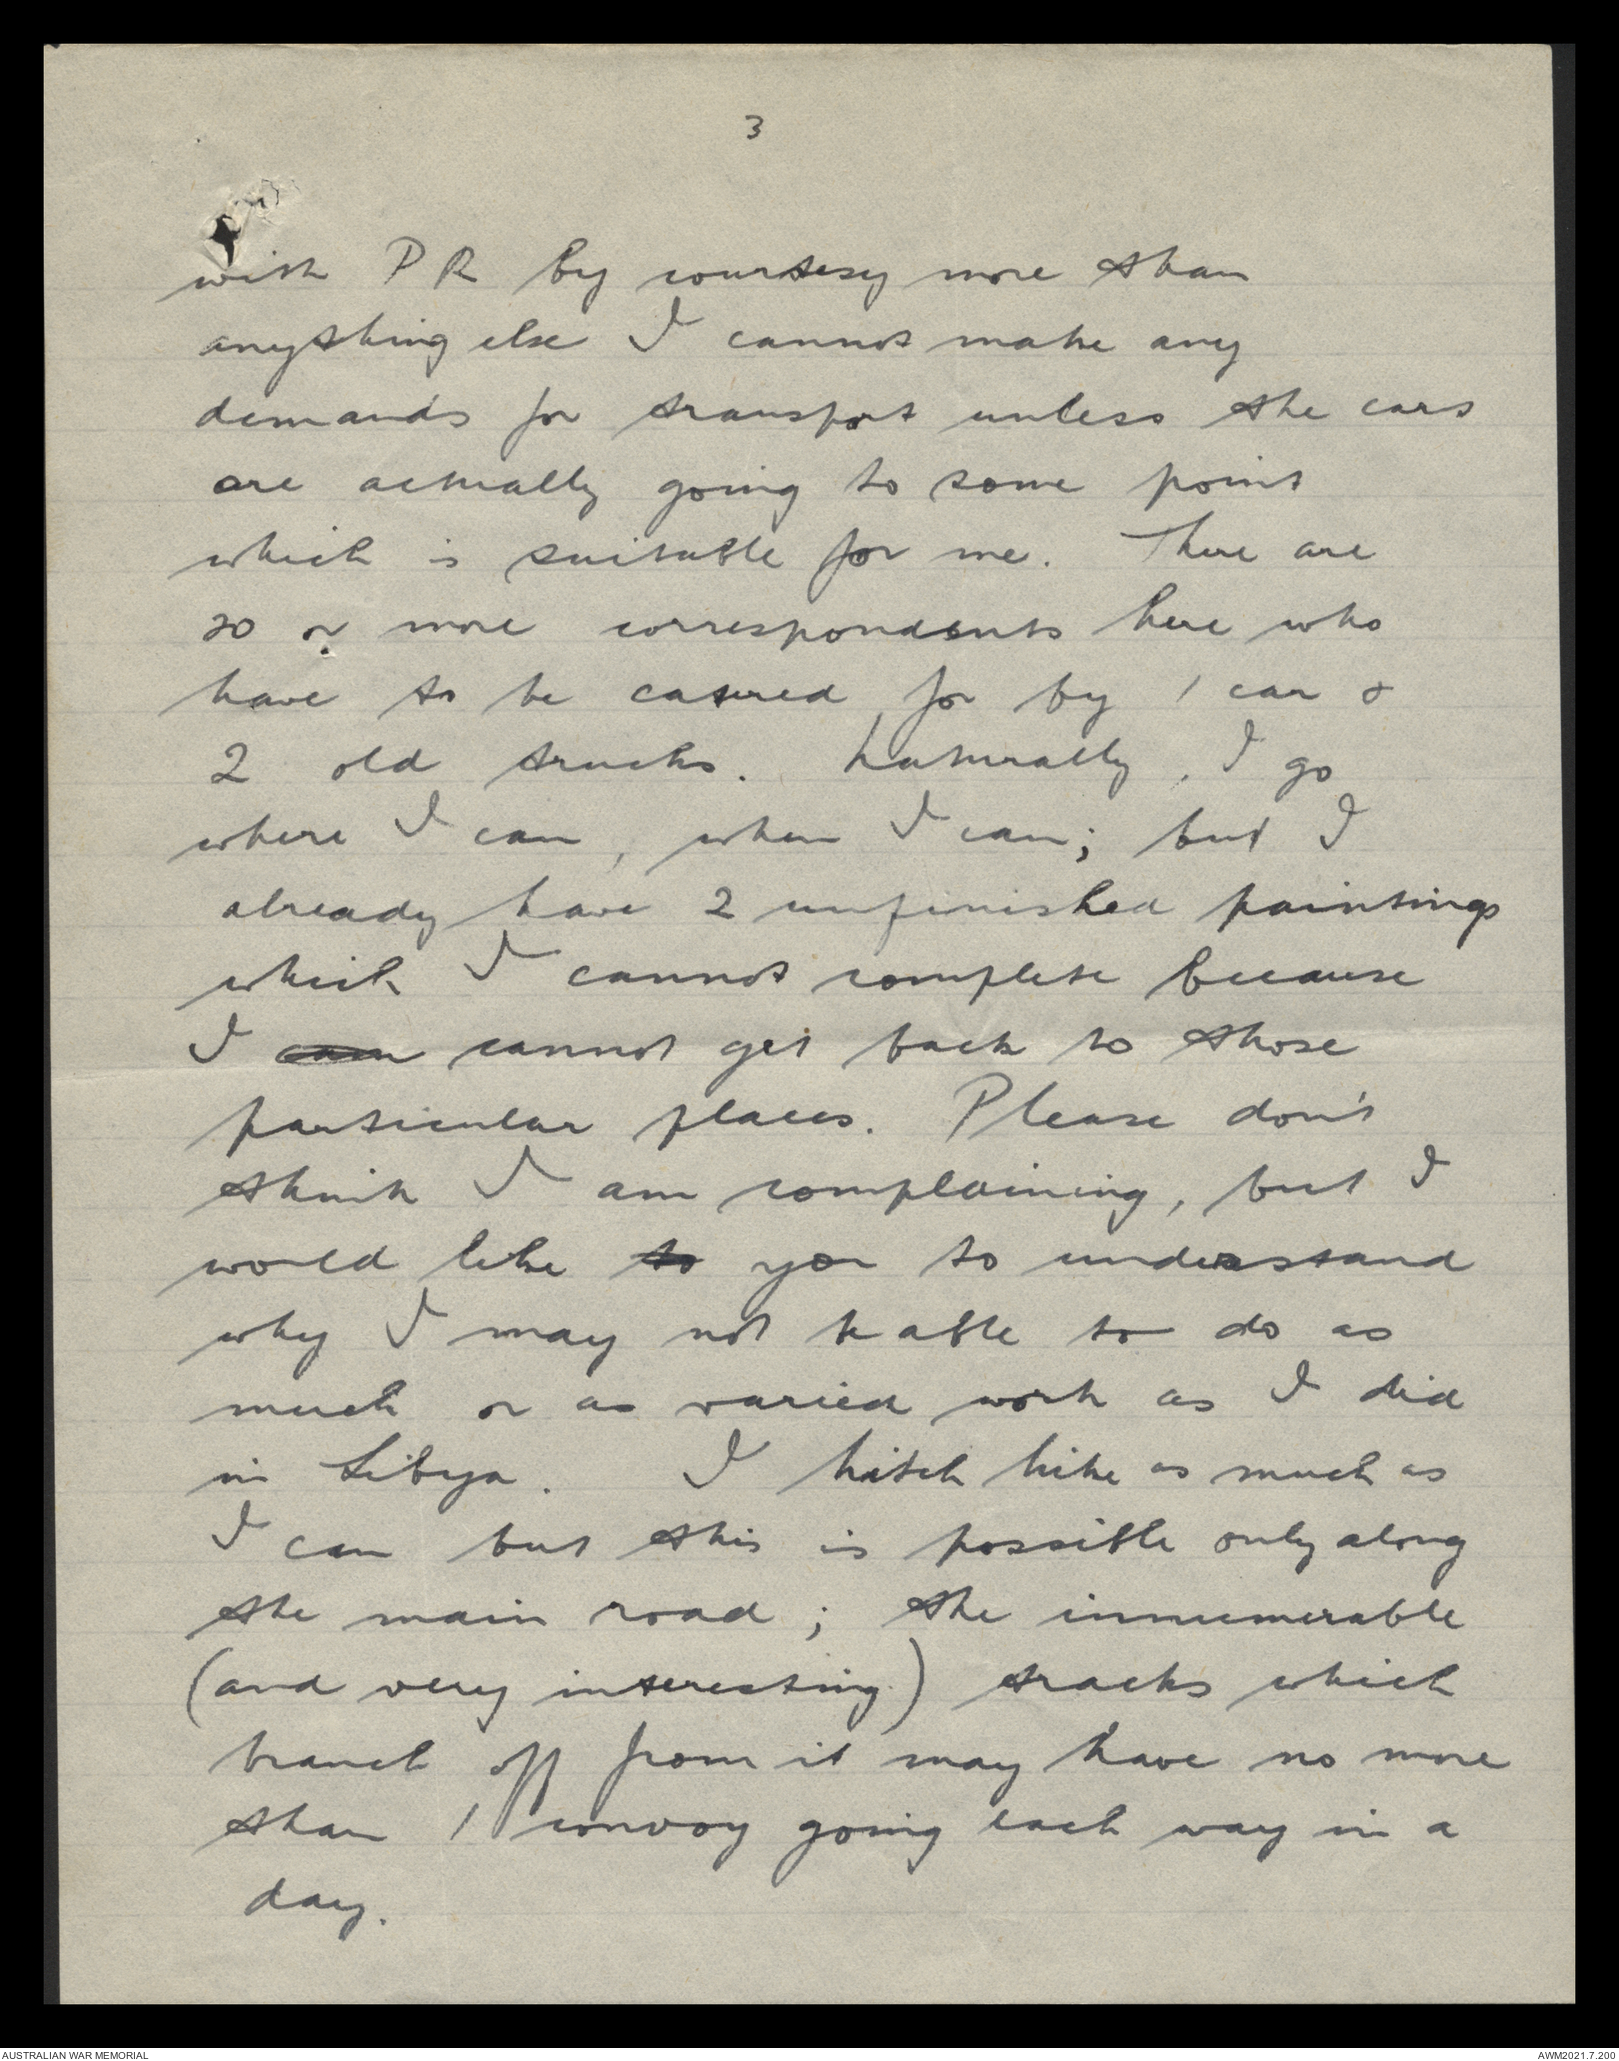 3
with PR by courtesy more than
anything else I cannot make any
demands for transport unless the cars
are actually going to some point
which is suitable for me. There are
20 or more correspondents here who
have to be catered for by 1 car &
2 old trucks. Naturally, I go
where I can, when I can; but I
already have 2 unfinished paintings
which I cannot complete because
I can cannot get back to those
particular places. Please don't
think I am complaining, but I
would like to you to understand
why I may not be able to do as
much or as varied work as I did
in Libya. I hitch hike as much as
I can but this is possible only along
the main road; the innumerable
(and very interesting) tracks which
branch off from it may have no more
than 1 convoy going each way in a
day.
AUSTRALIAN WAR MEMORIAL
AWM2021.7.200